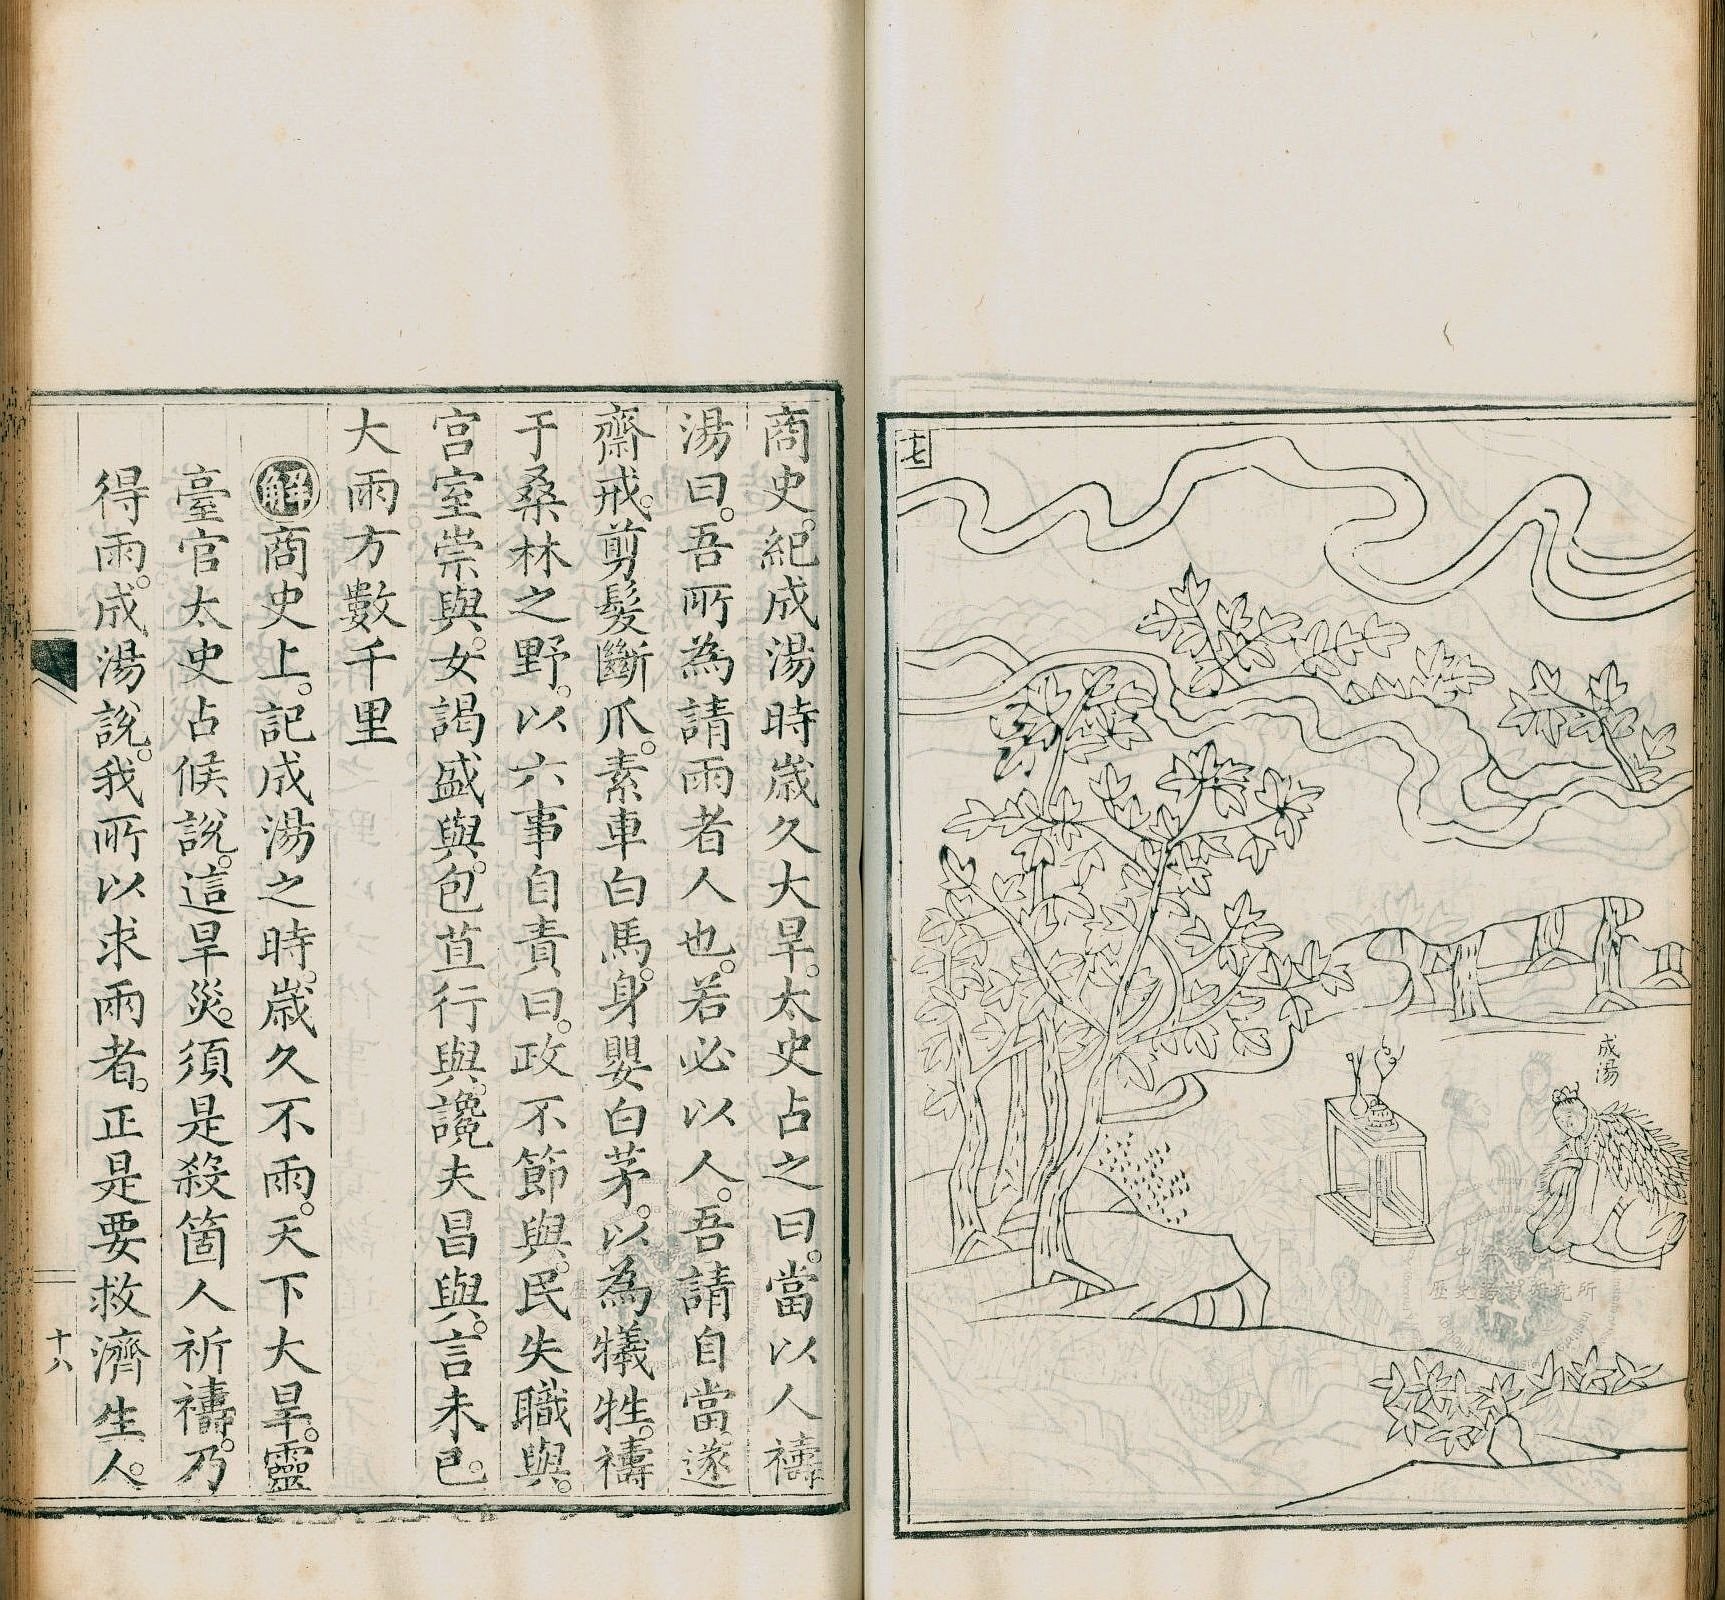 七
成湯
商史。紀成湯時歲久大旱。太史占之曰。當以人禱
湯曰。吾所為請雨者人也。若必以人。吾請自當。遂
齋戒。剪髮斷爪。素車白馬。身嬰白茅。以為犧牲。禱
于桑林之野。以六事自責曰。政不節與。民失職與。
宮室崇與。女謁盛與。包苴行與。讒夫昌與。言未已。
大雨方數千里
解商史上。記成湯之時。歲久不雨。天下大旱。靈
臺官太史占候說。這旱災。須是殺箇人祈禱。乃
得雨。成湯說。我所以求雨者。正是要救濟生人。
十八
歷史語言研究所